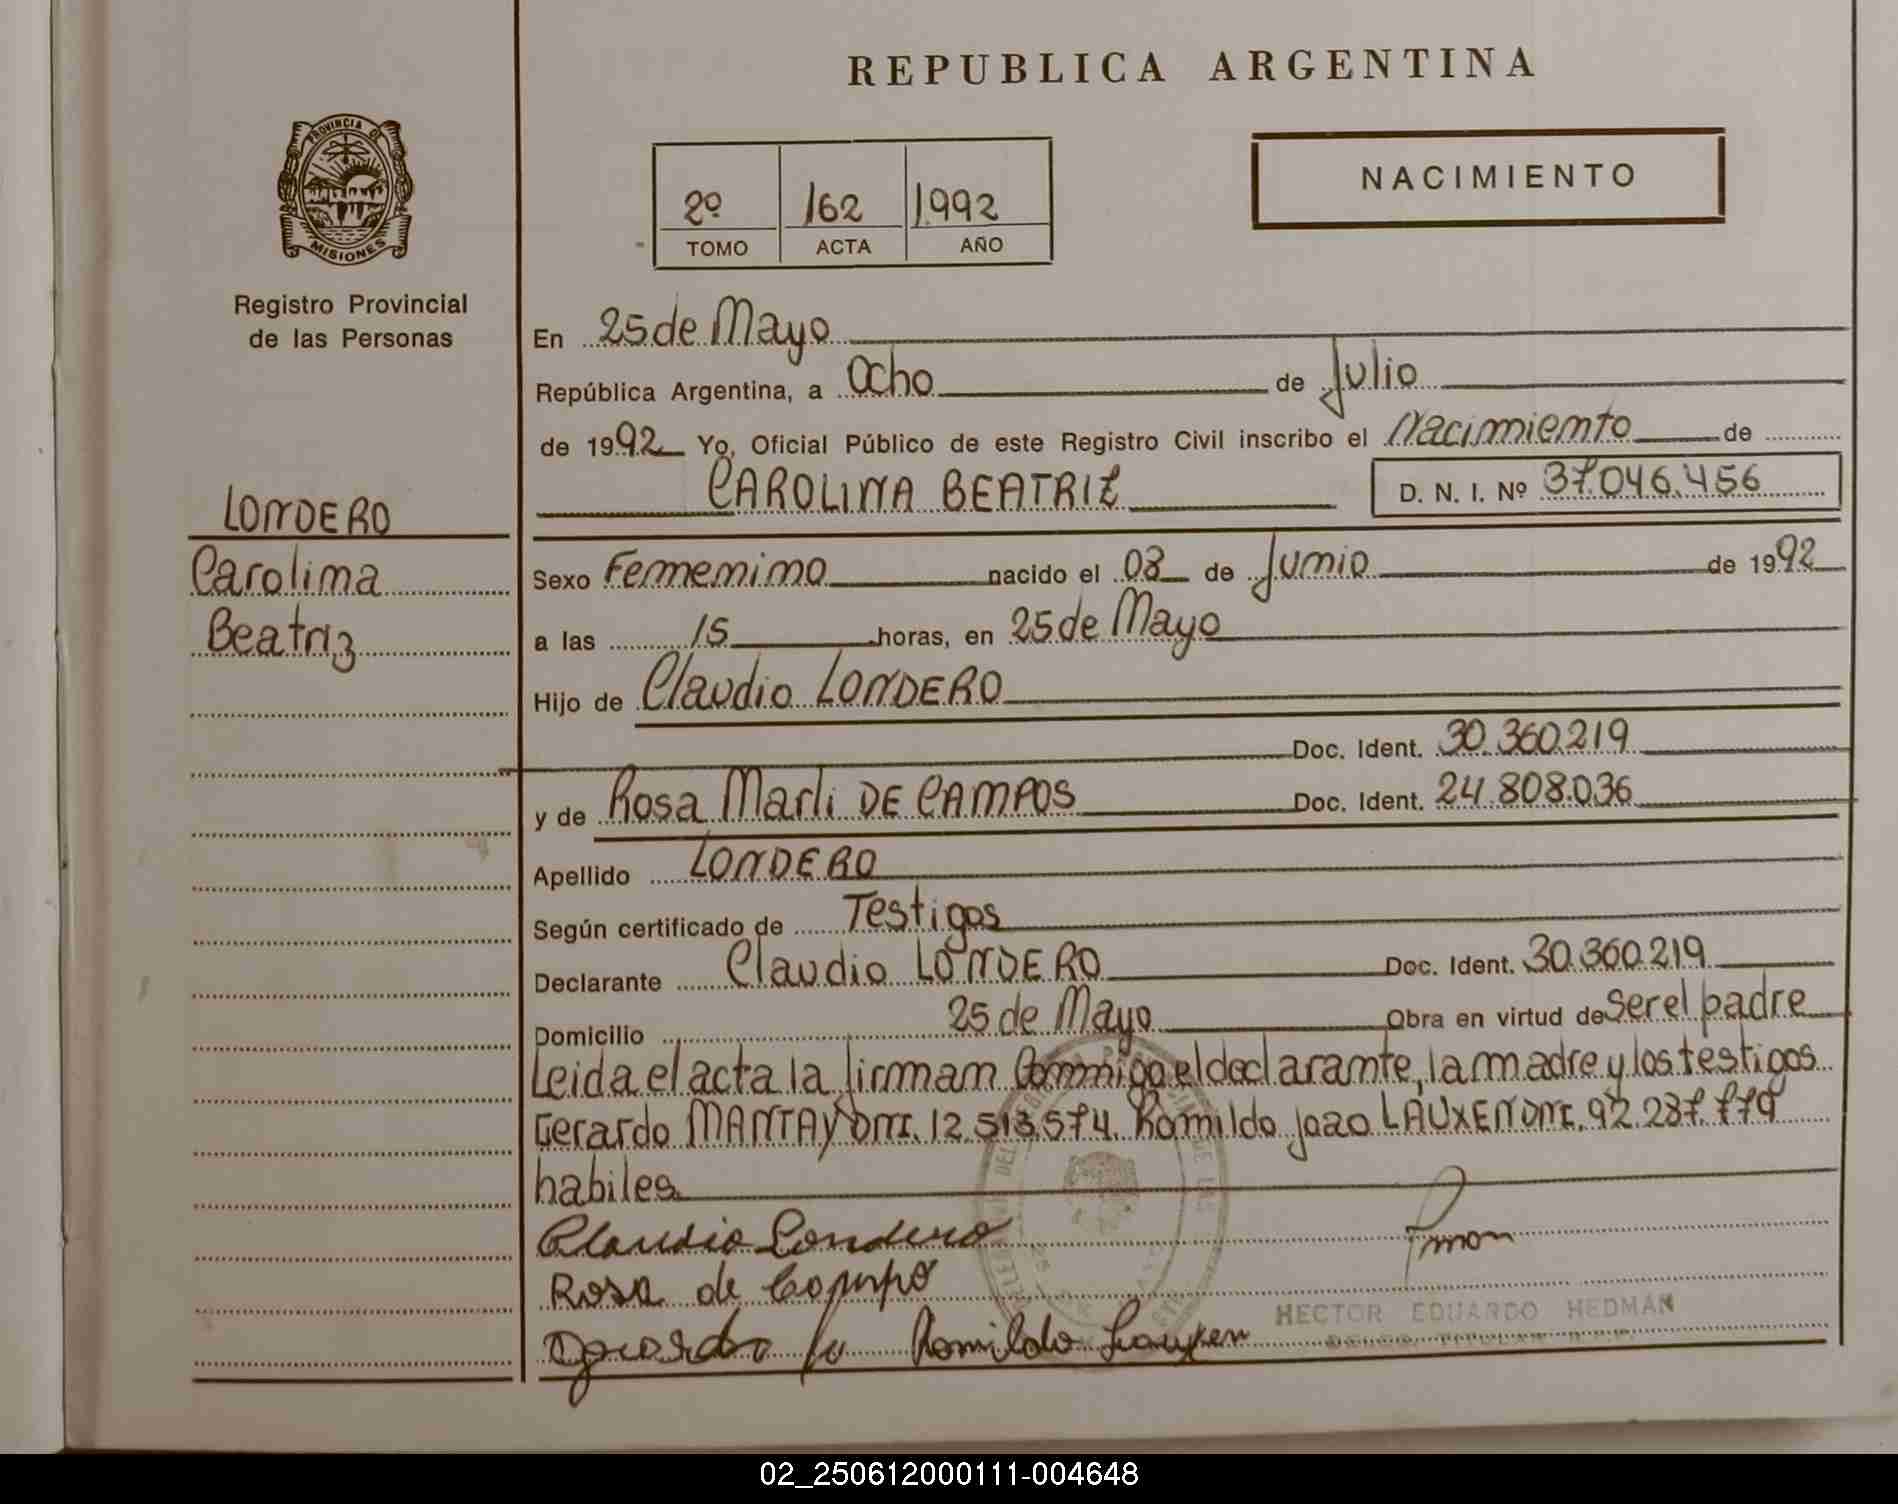 REPUBLICA ARGENTINA
PROVINCIA DE
MISIONES
Registro Provincial
de las Personas
2º 162 1992
TOMO ACTA AÑO
NACIMIENTO
LONDERO
Carolina
Beatriz
En 25 de Mayo
República Argentina, a Ocho de Julio
de 1992 Yo, Oficial Público de este Registro Civil inscribo el Nacimiento de
CAROLINA BEATRIZ D. N. I. Nº 37.046.456
Sexo Femenino nacido el 08 de Junio de 1992
a las 15 horas, en 25 de Mayo
Hijo de Claudio LONDERO
Doc. Ident. 30.360.219
y de Rosa Marli DE CAMPOS Doc. Ident. 24.808.036
Apellido LONDERO
Según certificado de Testigos
Declarante Claudio LONDERO Doc. Ident. 30.360.219
Domicilio 25 de Mayo Obra en virtud de Ser el padre
Leida el acta la firman Conmigo el declarante, la madre y los testigos
Gerardo MANTAY DNI. 12.513.574. Romildo Joao LAUXEN DNI. 92.287.779
habiles
Claudio Londero
Rosa de Campo
Romildo Lauxen
HECTOR EDUARDO HEDMAN
02_250612000111-004648